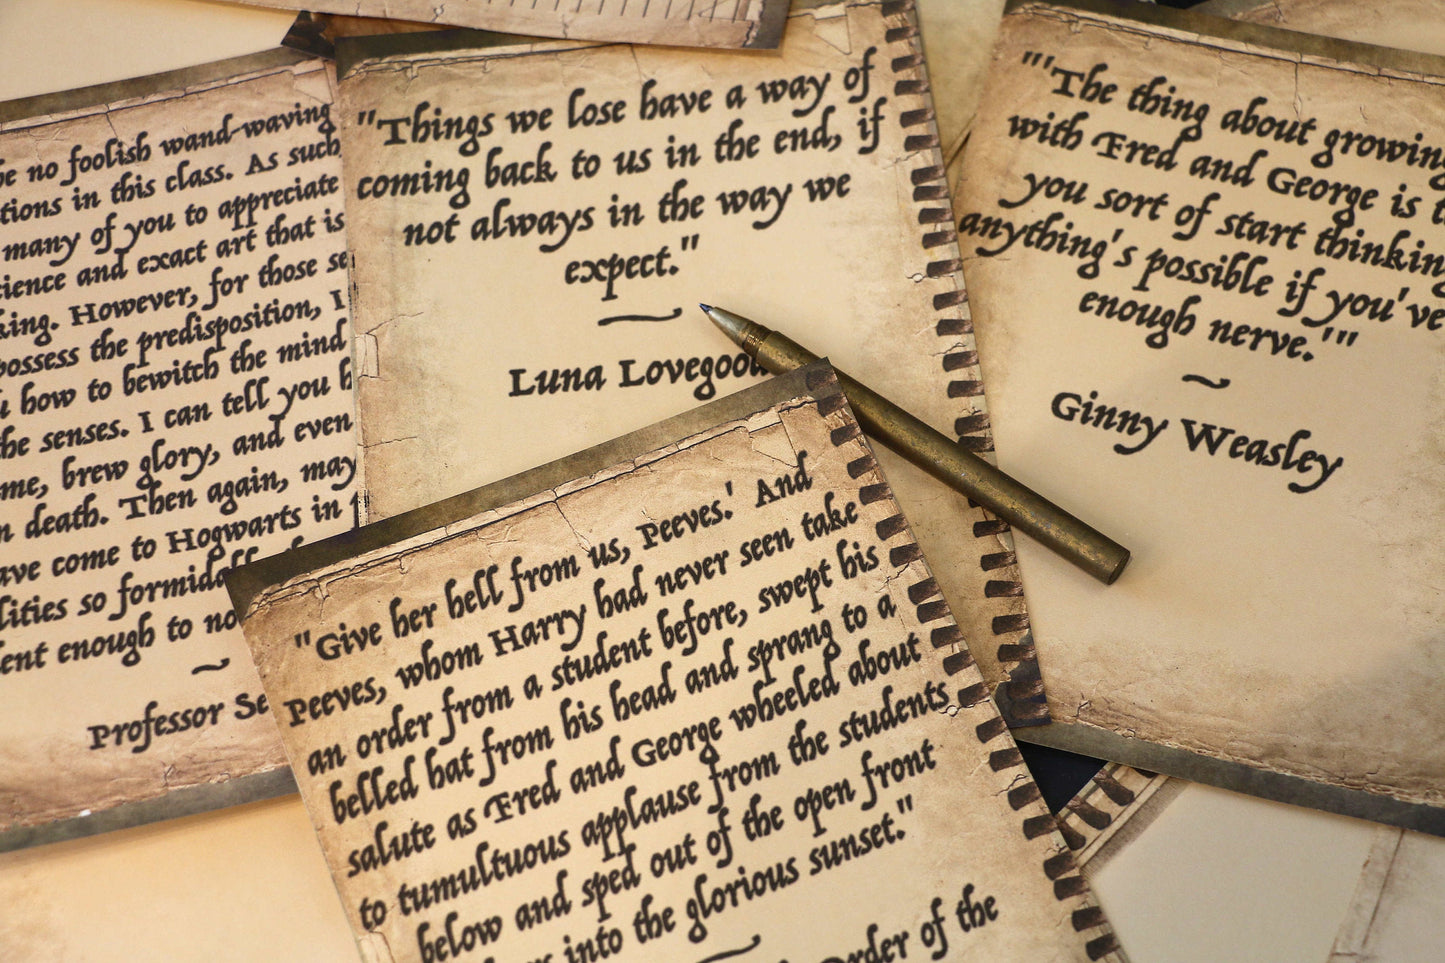 no foolish wand-waving
in this class. As such
many of you to appreciate
and exact art that is
However, for those
possess the predisposition, I
how to bewitch the mind
the senses. I can tell you
brew glory, and even
death. Then again, may
have come to Hogwarts in
so
enough to
~
Professor
"Things we lose have a way of
coming back to us in the end, if
not always in the way we
expect."
~
Luna
"'The thing about growing
with Fred and George is
you sort of start thinking
anything's possible if you've
enough nerve.'"
~
Ginny Weasley
"Give her hell from us, Peeves.' And
Peeves, whom Harry had never seen take
an order from a student before, swept his
belled hat from his head and sprang to a
salute as Fred and George wheeled about
to tumultuous applause from the students
below and sped out of the open front
into the glorious sunset."
~
of the